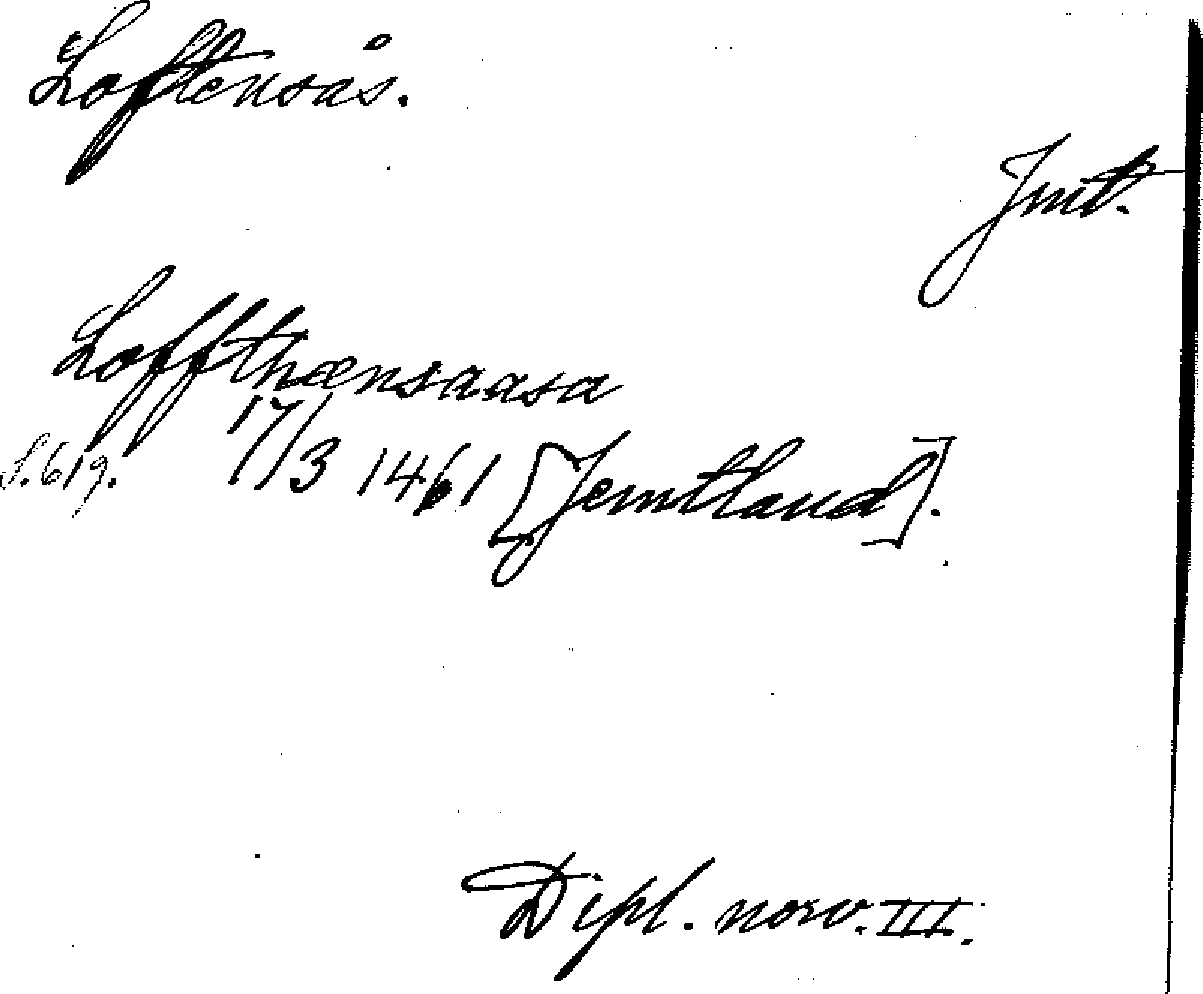 Loftensås.
Jmt.
Loffthænsaasa
S. 619. 17/3 1461 [Jemtland].
Dipl. norv. III.